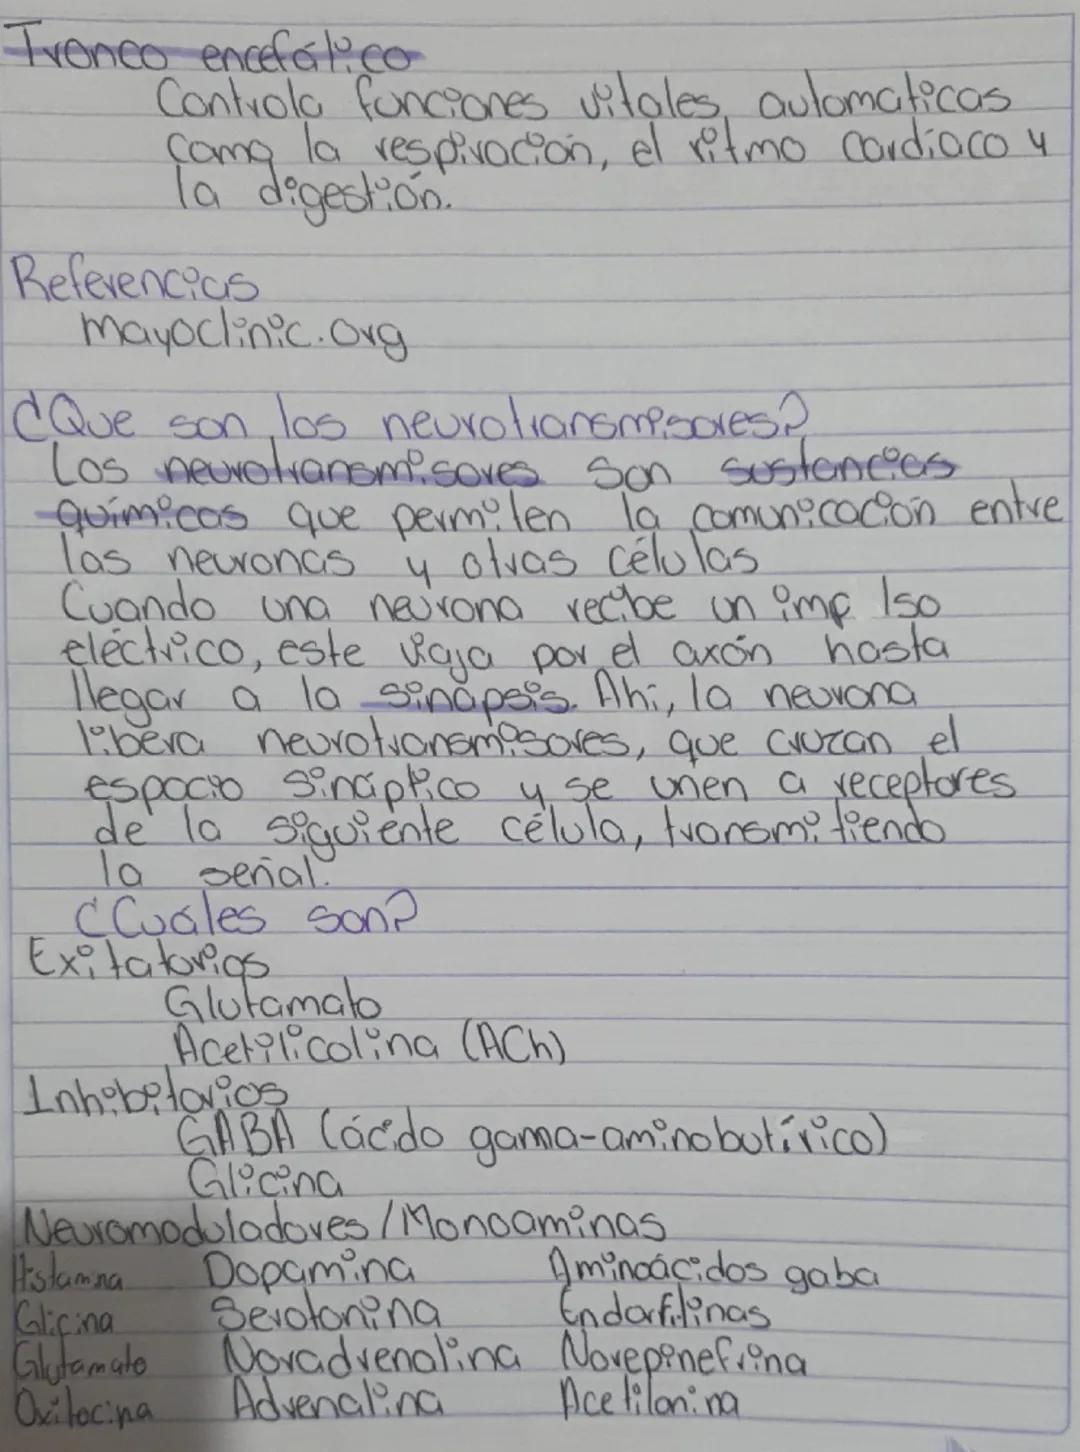 Tronco encefálico
Controla funciones vitales, automaticas
como la respiración, el ritmo cardíaco y
la digestión.
Referencias
mayoclinic.org
¿Que son los neurotransmisores?
Los neurotransmisores son sustancias
químicas que permiten la comunicación entre
las neuronas y otras células
Cuando una neurona recibe un imp lso
eléctrico, este viaja por el axón hasta
llegar a la sinapsis. Ahi, la neurona
libera neurotransmisores, que cruzan el
espacio sináptico y se unen a receptores
de la siguiente célula, transmitiendo
la señal.
¿Cuáles son?
Exitatorios
Glutamato
Acetilicolina (ACh)
Inhibitorios
GABA (ácido gama-aminobutírico)
Glicina
Neuromoduladores/Monoaminas
Histamina Dopamina Aminoácidos gaba
Glicina Serotonina Endorfilinas
Glutamato Noradrenalina Norepinefrina
Oxitocina Adrenalina Acetilonina